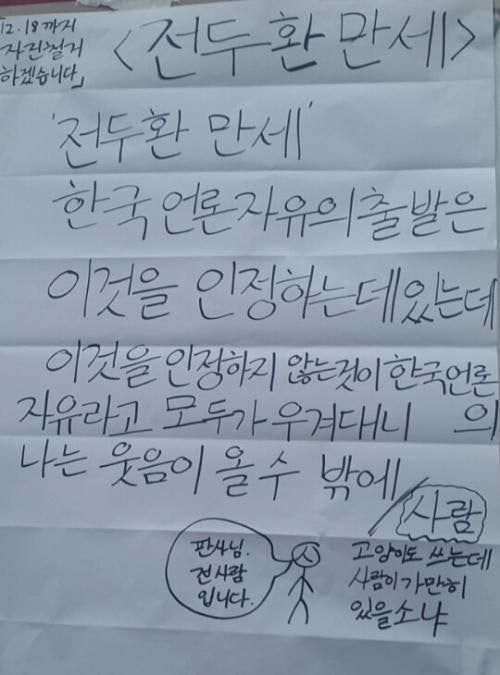 12.18까지
자진철거
하겠습니다」
<전두환 만세>
'전두환 만세'
한국 언론자유의 출발은
이것을 인정하는데 있는데
이것을 인정하지 않는것이 한국언론
자유라고 모두가 우겨대니 의
나는 웃음이 올 수 밖에
사람
판사님.
전 사람
입니다.
고양이도 쓰는데
사람이 가만히
있을소냐